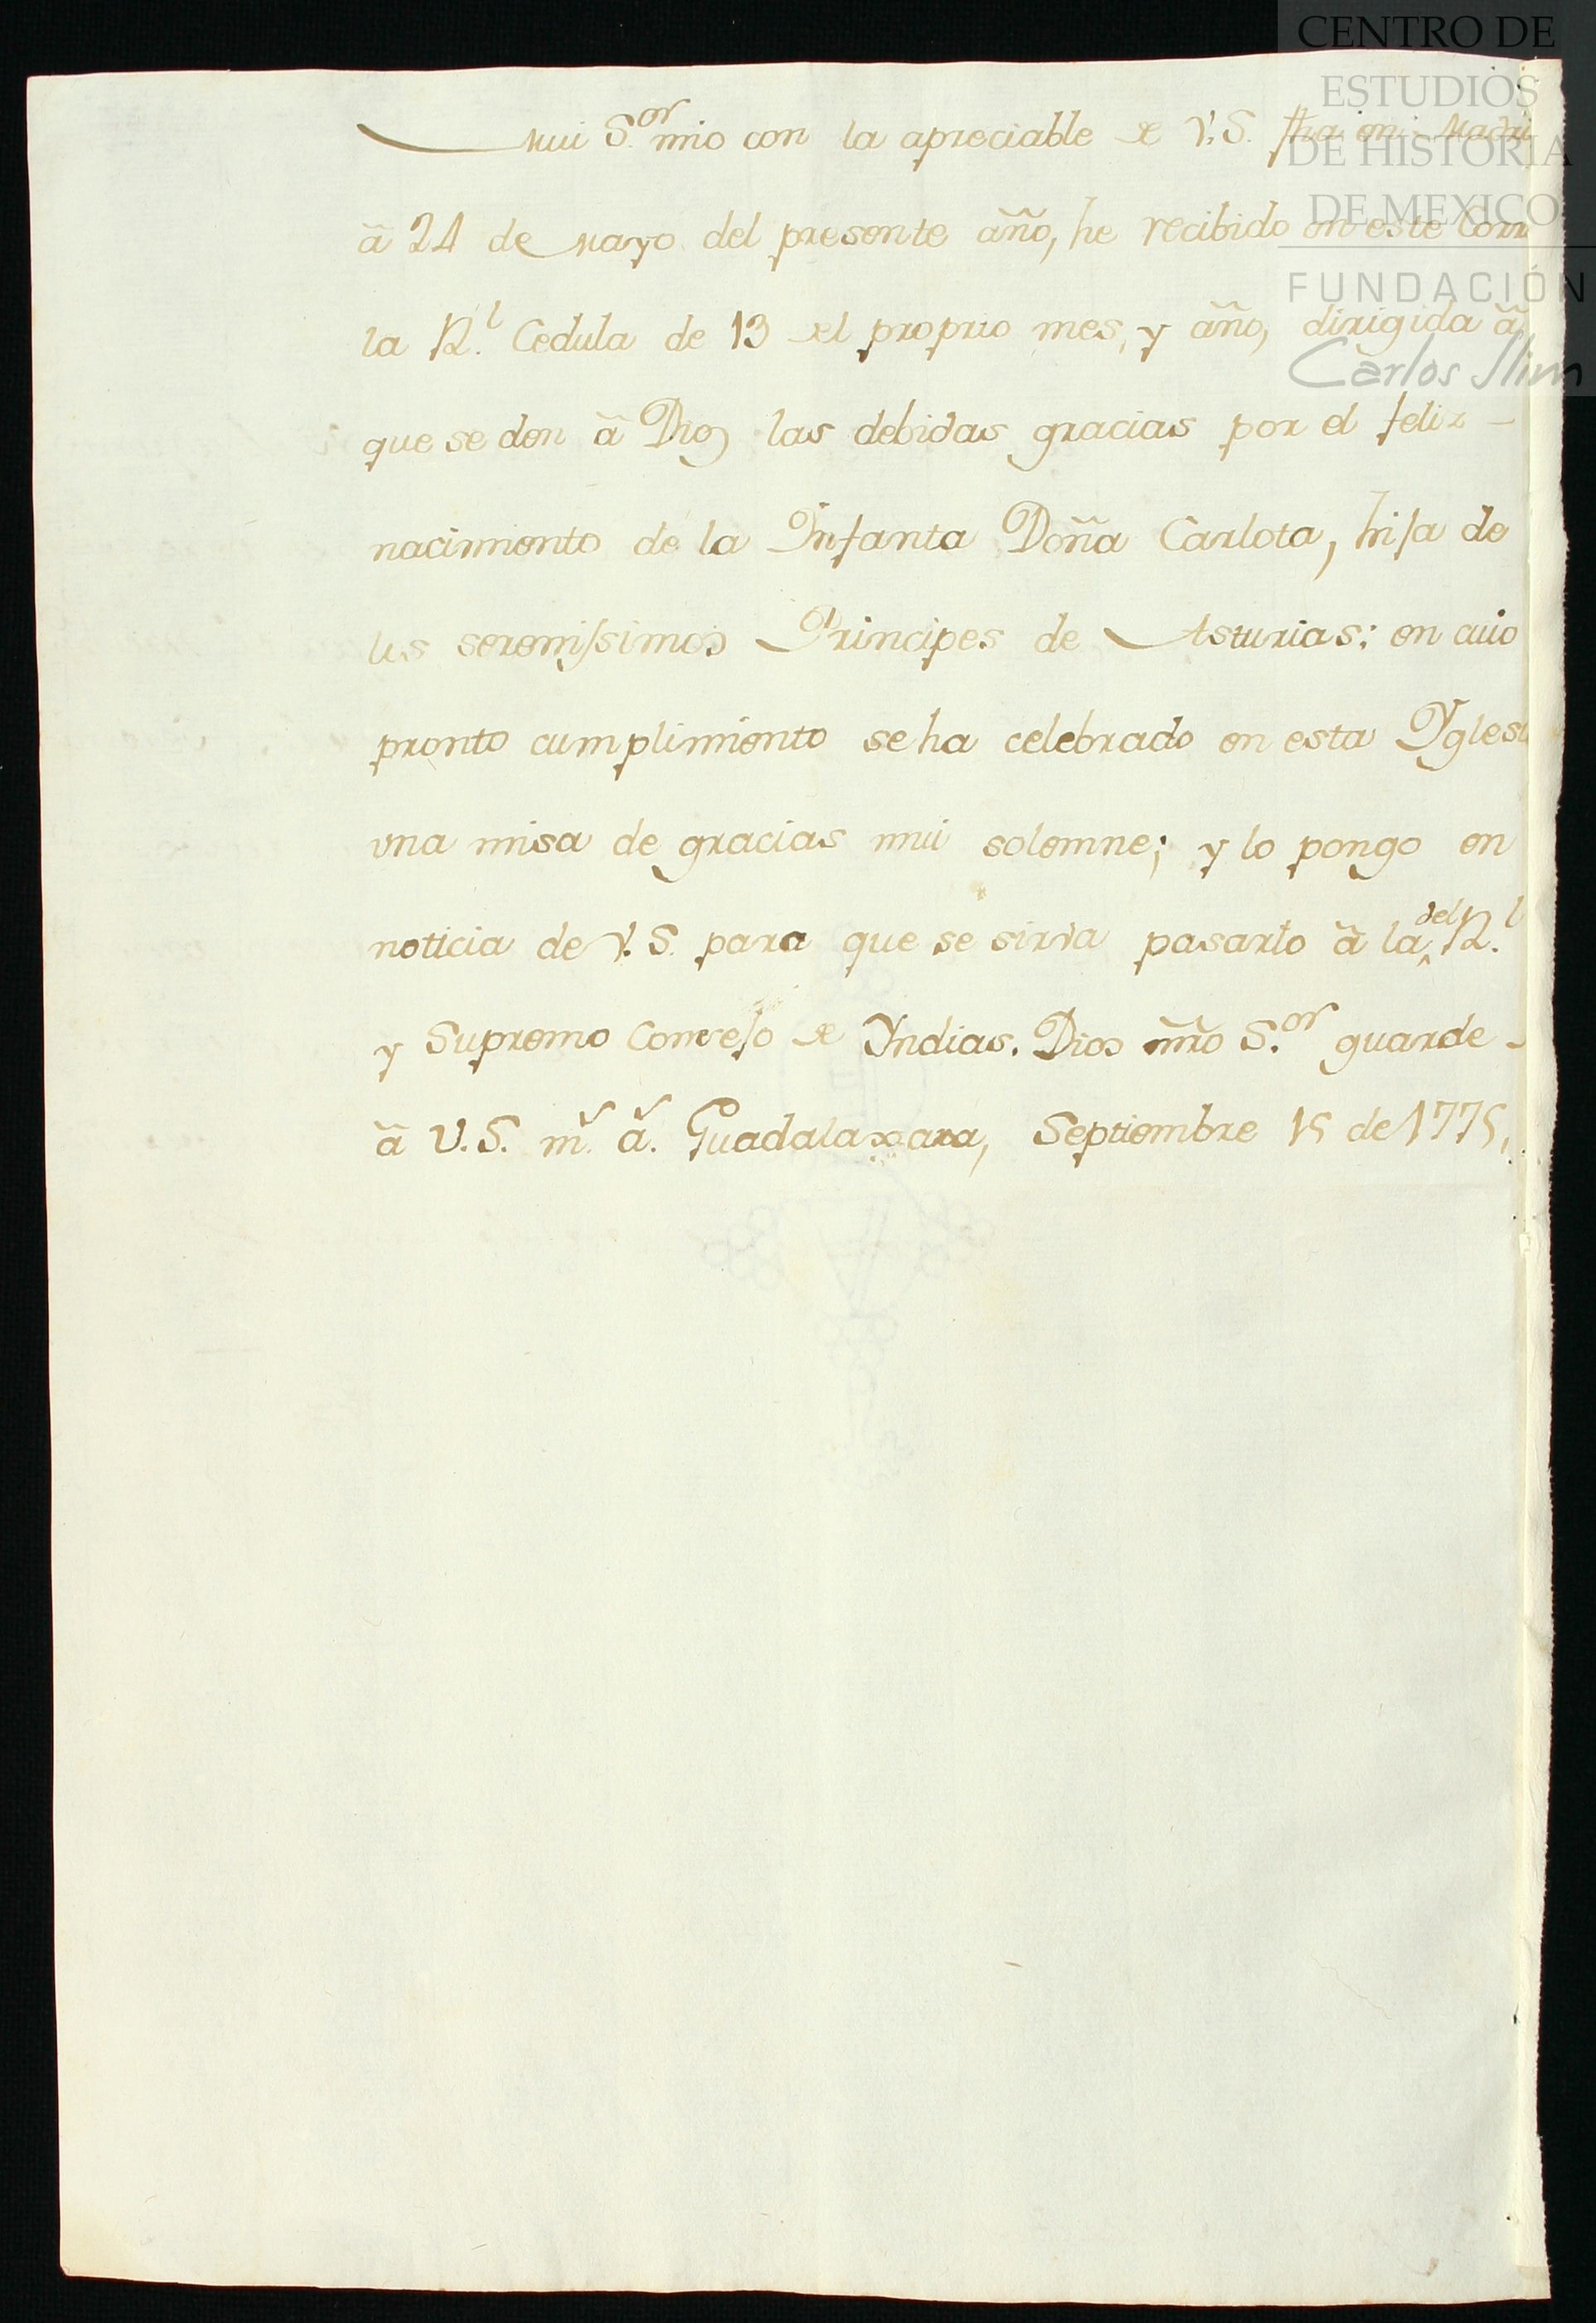 CENTRO DE
ESTUDIOS
DE HISTORIA
DE MEXICO
FUNDACIÓN
Carlos Slim
Mui S.or mio con la apreciable de V.S. fha en Madri
ã 24 de Mayo del presente año, he recibido en este Corr
la R.l Cedula de 13 del proprio mes, y año, dirigida ã
que se den ã Dios las debidas gracias por el feliz -
nacimiento de la Infanta Doña Carlota, hija de
los serenissimos Principes de Asturias: en cuio
pronto cumplimiento se ha celebrado en esta Yglesi
vna misa de gracias mui solemne; y lo pongo en
noticia de V.S. para que se sirva pasarlo ã la del R.l
y Supremo Consejo de Yndias. Dios nr̃o S.or guarde -
ã V.S. m.s a.s Guadalaxara, Septiembre 15 de 1775.